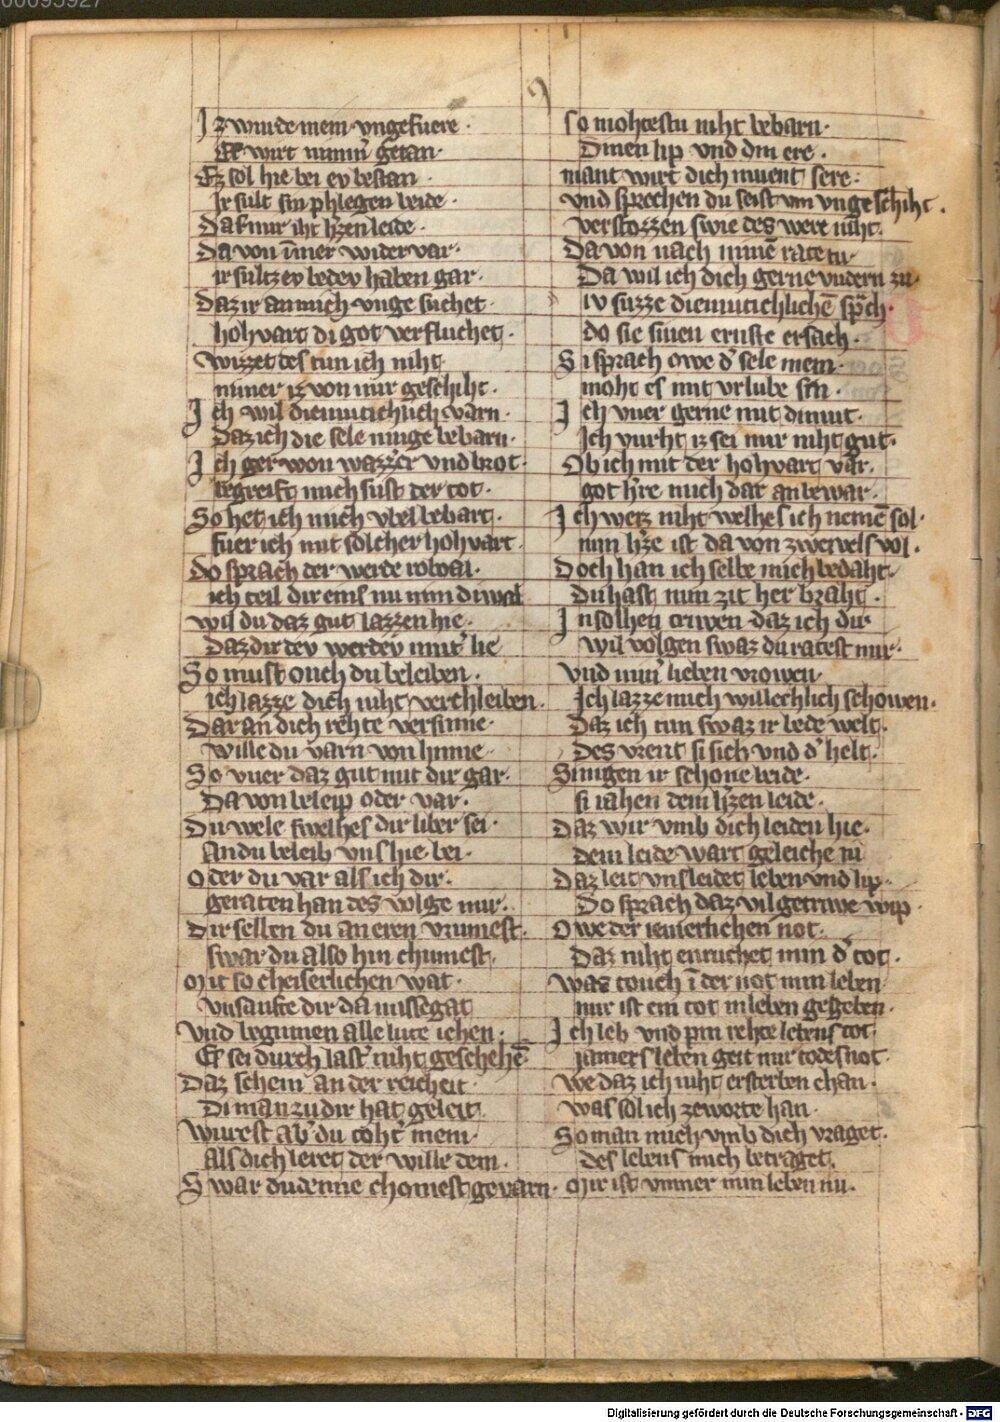 Iz wurde mein vngefuere ·
Ez wirt nimm̄ getan ·
Ez sol hie bei ev bestan ·
Ir sult sin phlegen beide ·
Daz mir iht h'zen leide ·
Da von īmer wider var ·
ir sultz ev bedev haben gar ·
Daz ir an mich vnge suchet ·
hohvart di got verfluchet ·
Wizzet des tun ich niht
nimer iz von mir geschiht ·
Ich wil diemutichlich varn ·
Daz ich die sele muge bebarn ·
Ich ger won wazzer vnd brot ·
begreift mich sust der tot ·
So het ich mich vbel bebart ·
fuer ich mit solcher hohvart ·
do sprach der werde
ich teil dir eins nu nim di wal
wil du daz gut lazzen hie ·
Daz dir dev werdev mut' lie
So must ouch du beleiben ·
ich lazze dich niht verchleiben ·
Dar an dich rehte versinne ·
wille du varn von hinne ·
So vuer daz gut mit dir gar ·
Da von beleip oder var ·
Du wele swelhes dir liber sei ·
An du beleib vns hie bei ·
Oder du var als ich dir ·
geraten han des volge mir ·
Dir selben du an eren vrumest ·
swar du also hin chumest ·
Mit so cheiserlichen wat ·
vnsanfte dir da missegat
Vnd beginnen alle lute iehen ·
Ez sei durch last' niht geschehē
Daz schein an der reicheit ·
Di man zu dir hat geleit
Wurest ab' du toht' mein ·
Als dich leret der wille dein ·
Swar du denne chomest gevarn ·
so mohtestu niht bebarn ·
Dinen lip vnd din ere ·
mant wirt dich muent sere ·
vnd sprechen du seist vm vnge schiht ·
verstozzen swie des were niht ·
Da von nach minē rate tu ·
Da wil ich dich gerne vudern zu ·
iv suzze diemutichlichē sp̄ch ·
do sie sinen ernste ersach ·
Si sprach owe d' sele mein ·
moht es mit vrlube sin ·
Ich vuer gerne mit dimut ·
Ich vurht iz sei mir niht gut ·
Ob ich mit der hohvart var ·
got h're mich dar an bewar ·
Ich weiz niht welhes ich nemē sol ·
min h'ze ist da von zweivels vol ·
Doch han ich selbe mich bedaht ·
Du hast mim zit her braht ·
In solhen triwen daz ich dir
wil volgen swaz du ratest mir ·
Vnd min' lieben vrowen ·
Ich lazze mich willechlich schowen ·
Daz ich tun swaz ir bede welt ·
Des vreut si sich vnd d' helt ·
Sinigen ir schone beide ·
si iahen dem h'zen leide ·
Daz wir vmb dich leiden hie ·
dem leide wart geleiche ni
Daz leit vns leidet leben vnd lip ·
Do sprach daz vil getriwe wip ·
Owe der iemerlichen not ·
Daz niht enruchet min d' tot ·
waz touch ī der not min leben
mir ist ein tot in leben gegeben ·
Ich leb vnd pin rehte lebens tot
iamers leben geit mir todes not ·
we daz ich niht ersterben chan ·
was sol ich zeworte han ·
So man mich vmb dich vraget ·
des lebens mich betraget ·
Mir ist vmmer min leben nu ·
Digitalisierung gefördert durch die Deutsche Forschungsgemeinschaft - DFG